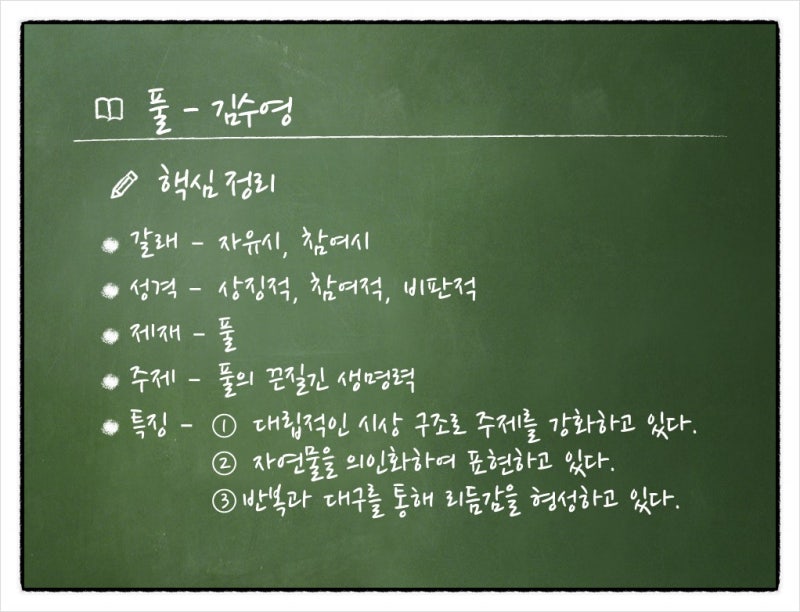 풀 - 김수영
핵심 정리
갈래 - 자유시, 참여시
성격 - 상징적, 참여적, 비판적
제재 - 풀
주제 - 풀의 끈질긴 생명력
특징 - ① 대립적인 시상 구조로 주제를 강화하고 있다.
② 자연물을 의인화하여 표현하고 있다.
③ 반복과 대구를 통해 리듬감을 형성하고 있다.